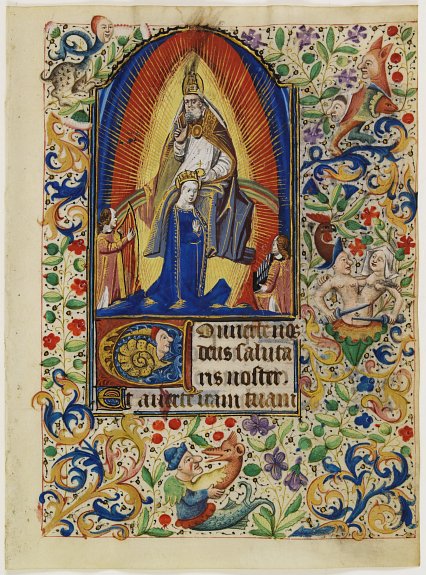 Converte nos
deus saluta
ris noster.
Et averte iram tuam